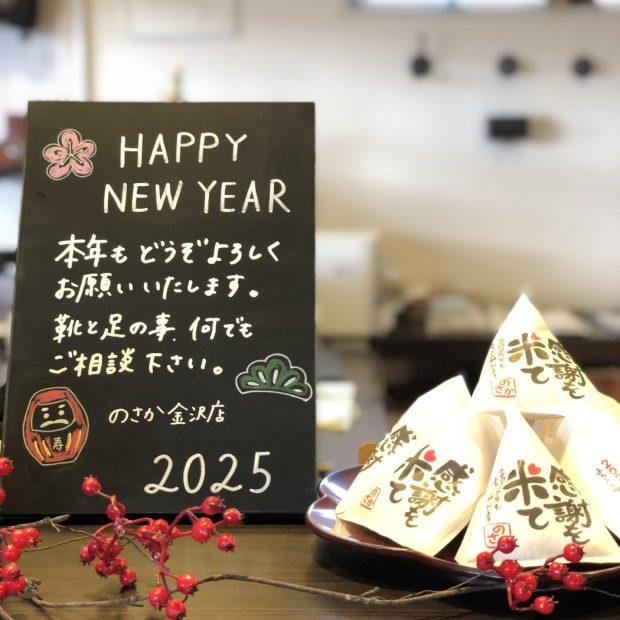 HAPPY
NEW YEAR
本年もどうぞよろしく
お願いいたします。
靴と足の事、何でも
ご相談下さい。
のさか 金沢店
寿
2025
感謝を
米て
のさか
感謝を
米て
感謝を
米て
のさか